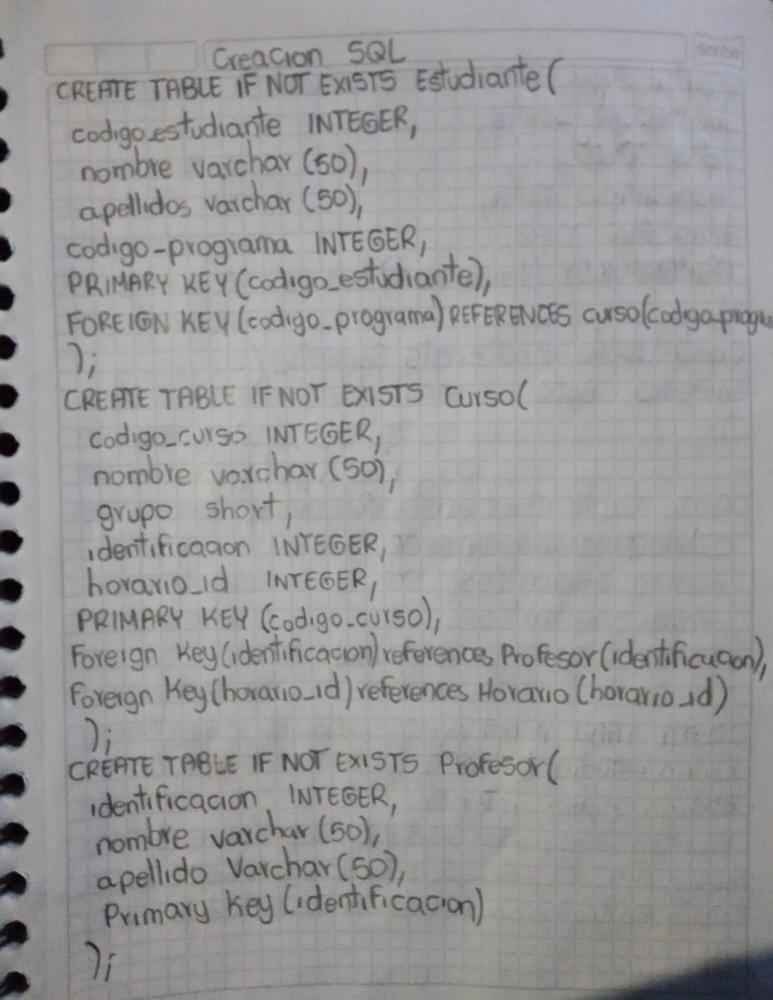 Creacion SQL
CREATE TABLE IF NOT EXISTS Estudiante(
codigo_estudiante INTEGER,
nombre varchar (50),
apellidos varchar (50),
codigo-programa INTEGER,
PRIMARY KEY(codigo_estudiante),
FOREIGN KEY(codigo_programa) REFERENCES curso(codigo-progra
);
CREATE TABLE IF NOT EXISTS Curso(
codigo_curso INTEGER,
nombre varchar (50),
grupo short,
identificacion INTEGER,
horario_id INTEGER,
PRIMARY KEY (codigo_curso),
Foreign Key(identificacion) references Profesor(identificacion),
Foreign Key(horario_id) references Horario (horario_id)
);
CREATE TABLE IF NOT EXISTS Profesor(
identificacion INTEGER,
nombre varchar (50),
apellido Varchar (50),
Primary key (identificacion)
);